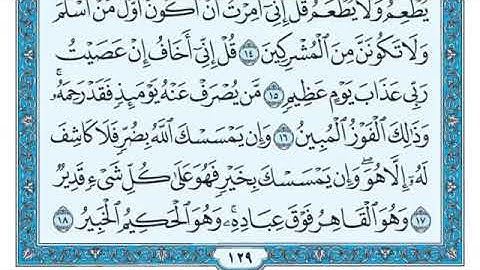 يُطْعِمُ وَلَا يُطْعَمُ قُلْ إِنِّىٓ أُمِرْتُ أَنْ أَكُونَ أَوَّلَ مَنْ أَسْلَمَ
وَلَا تَكُونَنَّ مِنَ ٱلْمُشْرِكِينَ ١٤ قُلْ إِنِّىٓ أَخَافُ إِنْ عَصَيْتُ
رَبِّى عَذَابَ يَوْمٍ عَظِيمٍ ١٥ مَّن يُصْرَفْ عَنْهُ يَوْمَئِذٍ فَقَدْ رَحِمَهُۥۚ
وَذَٰلِكَ ٱلْفَوْزُ ٱلْمُبِينُ ١٦ وَإِن يَمْسَسْكَ ٱللَّهُ بِضُرٍّ فَلَا كَاشِفَ
لَهُۥٓ إِلَّا هُوَۖ وَإِن يَمْسَسْكَ بِخَيْرٍ فَهُوَ عَلَىٰ كُلِّ شَىْءٍ قَدِيرٌ
١٧ وَهُوَ ٱلْقَاهِرُ فَوْقَ عِبَادِهِۦۚ وَهُوَ ٱلْحَكِيمُ ٱلْخَبِيرُ ١٨
١٢٩